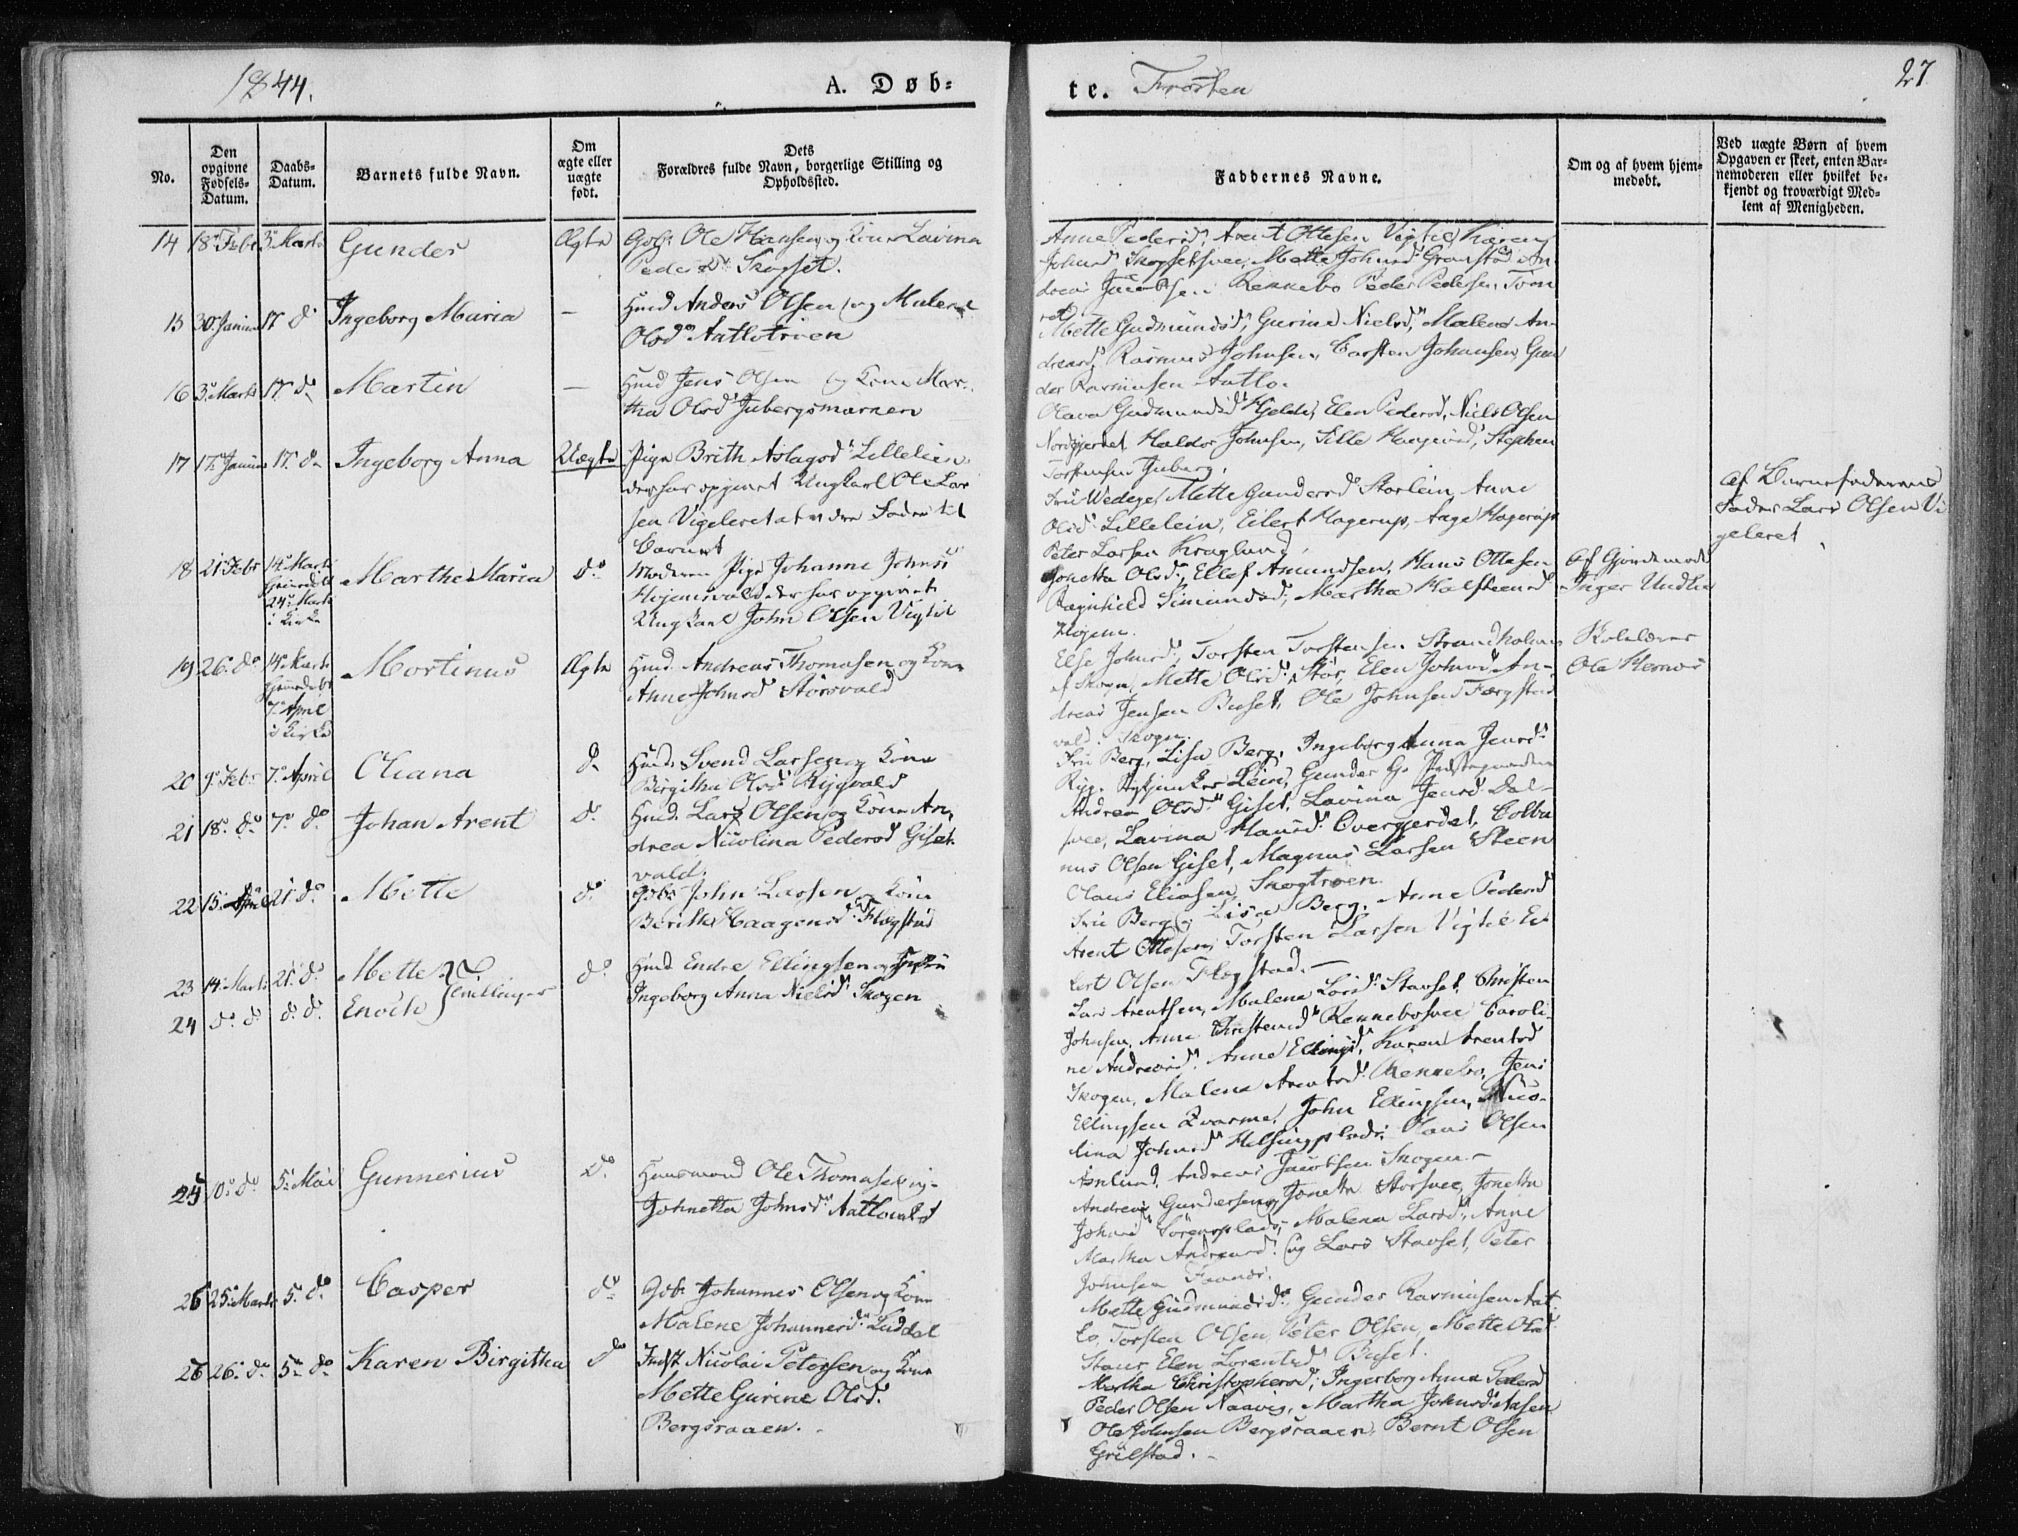 1844.
A. Døb=
te. Frosten
27
No.
Den opgivne Fødsels-Datum.
Daabs-Datum.
Barnets fulde Navn.
Om ægte eller uægte født.
Dets Forældres fulde Navn, borgerlige Stilling og Opholdssted.
Faddernes Navne.
Om og af hvem hjemmedøbt.
Ved uægte Børn af hvem Opgaven er skeet, enten Barnemoderen eller hvilket bekjendt og troværdigt Medlem af Menigheden.
14 18de Febr 3de Marts Gunder Ægte Gbr. Ole Hansen og Kone Lavina
Pedersdr. Skogset.
Anne Pedersd. Arent Ottesen Vigtil, Karen
Johnsd. Skogsetsvee, Mette Johnsd.
Jacobsen Rennebo Peder Pedersen
15 30. Januar 17 do Ingeborg Maria — Husmd Anders Olsen og Malena
Olsdr Aatlotrøen
Mette Gudmundsd., Gurine Nielsd., Malena An-
dreasd, Rasmus Johnsen, Carsten Johansen, Gun
der Rasmusen Aatlo.
16 3. Marts 17. do Martin — Husmd Jens Olsen og Kone Mar-
tha Olsd. Jubergsmarken
Olava Gudmundsd. Hjelde, Elen Pedersd, Niels Olsen
Nordgjerdet Haldor Johnsen, Sille Haagensd, Stephen
Torstensen Juberg.
17 17. Januar 17. do Ingeborg Anna Uægte Pige Brith Aslagsd. Lillelein
der har opgivet Ungkarl Ole Lar
sen Vigeleret at være Fader til
Barnet
Fru Wedege, Mette Gundersd. Storlein, Anne
Olsd. Lillelein, Eilert Hagerup, Aage Hagerup
Peter Larsen Kraglund.
af Barnefaderens
Fader Lars Olsen Vi
geleret
18 21 Febr 14. Marts
hjemdøbt
24. Marts
i Kirke
Marthe Maria do Moderen Pige Johanne Johnsd
Hojemsvald der har opgivet
Ungkarl John Olsen Vigtil
Jonetta Olsd., Ellef Amundsen, Hans Ottesen
Ragnhild Simundsd., Martha Halsteensd
Hojem.
af Gjordemoder
Inger Undlia
19 26. do 14. Marts
hjemdøbt
7. April
i Kirke
Mortinus Ægte Husmd. Andreas Thomasen og Kone
Anne Johnsd Storsvald
Else Johnsd., Torsten Torstensen Strandholm
af Skogn, Mette Olsd. Stor, Elen Johnsd An-
dreas Jensen Buset, Ole Johnsen Færgstad
vald. Skogn.
Skolelærer
Ole Hernes
20 9. Febr 7. April Oliana do Husmd. Svend Larsen og Kone
Birgitha Olsd. Rygvald
Fru Berg, Lisa Berg, Ingeborg Anna Jensd.
Ryg. Lein, Gunder
21 18. do 7. do Johan Arent do Husmd. Lars Olsen og Kone An-
drea Nicolina Pedersd Giset-
vald.
Andrea Olsd. Giset, Lavina Jensd Dal-
svee, Lavina Hansd. Overgjerdet, Colbu
nus Olsen Giset, Magnus Larsen Steen
Olaus Eliasen Skogtrøen.
22 15. April 21. do Mette do Gbr. John Larsen og Kone
Berith Haagensd. Flægstad
Fru Berg, Lisa Berg, Anne Pedersd
Arent Ottesen, Torsten Larsen Vigtil Ei-
lert Olsen Flægstad. —
23 14. Marts 21. do Mette
24 do do do do Enoch
Tvillinger
do Husmd Endre Ellingsen og
Ingeborg Anna Nielsd. Skogen
Lars Arentsen, Malena Larsd. Stavset, Christen
Johnsen, Anne Christensd Rennebosvee Caroli-
ne Andreasd. Anne Ellingsd. Karen Arentsd
Skogen, Malena Arentsd. Rennebo, Jens
Ellingsen Kvarme, John Ellingsen, Nico-
lina Johnsd. Helsingplads, Olaus Olsen
Asklund, Andreas Jacobsen Skogen. —
25 10. do 5. Mai Gunnerius do Huusmand Ole Thomasen og
Johnetta Johnsd. Aatlovald
Andreas Gundersen, Jonetta Storsvee, Jonetta
Johnsd. Sørensplads, Malena Larsd., Anne
Martha Andreasd. og Lars Stavset, Peter
Johnsen Faanes.
26 25. Marts 5. do Casper do Gbr. Johannes Olsen og Kone
Malene Johannesd. Luddal
Mette Gudmundsd. Gunder Rasmusen Aat-
lo, Torsten Olsen, Peter Olsen, Mette Olsd.
Staur, Elen Lorentsd. Buset.
26 26. do 5. do Karen Birgitha do Indst. Nicolai Petersen og Kone
Mette Gurine Olsd.
Bergsraaen. -
Martha Christophersd., Ingeborg Anna Pedersd
Peder Olsen Naavig, Martha Johnsd. Aasen
Ole Johnsen Bergsraaen, Bernt Olsen
Grilstad. -